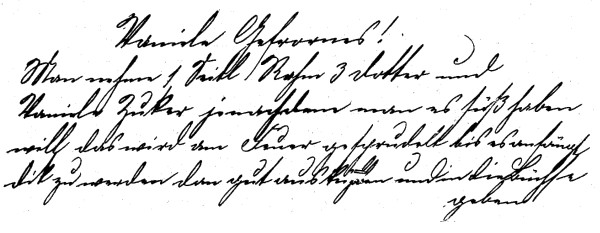 Vaniele Gefrornes!
Man nehme 1 Seitl Rahm 3 dotter und
Vaniele Zuker jenachdem man es süß haben
will das wird am Feuer gesprudelt bis es anfängt
dik zu werden dan gut und in die Büchse
geben